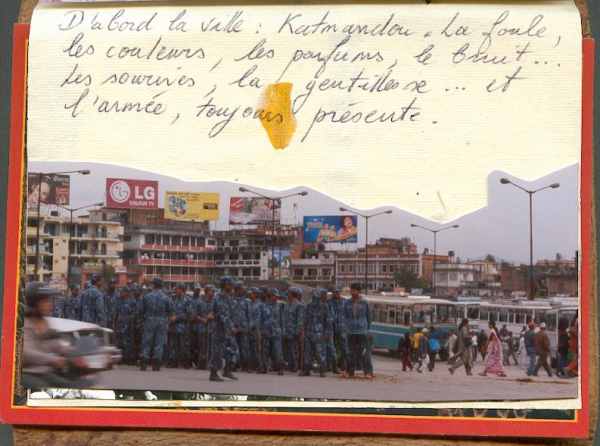 D'abord la ville : Katmandou. La foule,
les couleurs, les parfums, le bruit...
Les sourires, la gentillesse... et
l'armée, toujours présente.
LG